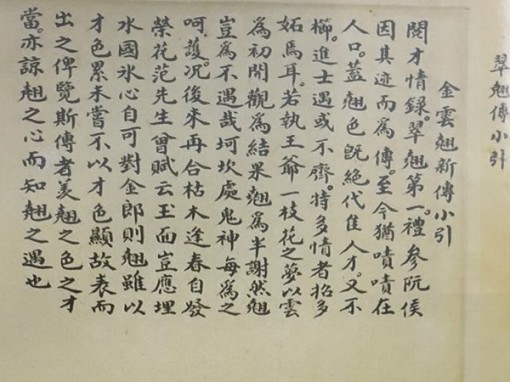 翠翹傳小引
金雲翹新傳小引
閱才情錄。翠翹第一。禮參阮侯
因其迹而為傳。至今猶嘖嘖在
人口。蓋翹色旣絕代隹人才。又不
櫛。進士遇或不齊。特多情者招多
妬焉耳。若執王爺一枝花之夢以雲
為初開觀為結果翹為半謝然翹
豈為不遇哉坷坎處鬼神每為之
呵護。况後來再合枯木逢春自發
榮花范先生曾賦云玉面豈應埋
水國氷心自可對金郎則翹雖以
才色累未嘗不以才色顯故表而
出之俾覽斯傳者羙翹之色之才
當。亦諒翹之心而知翹之遇也